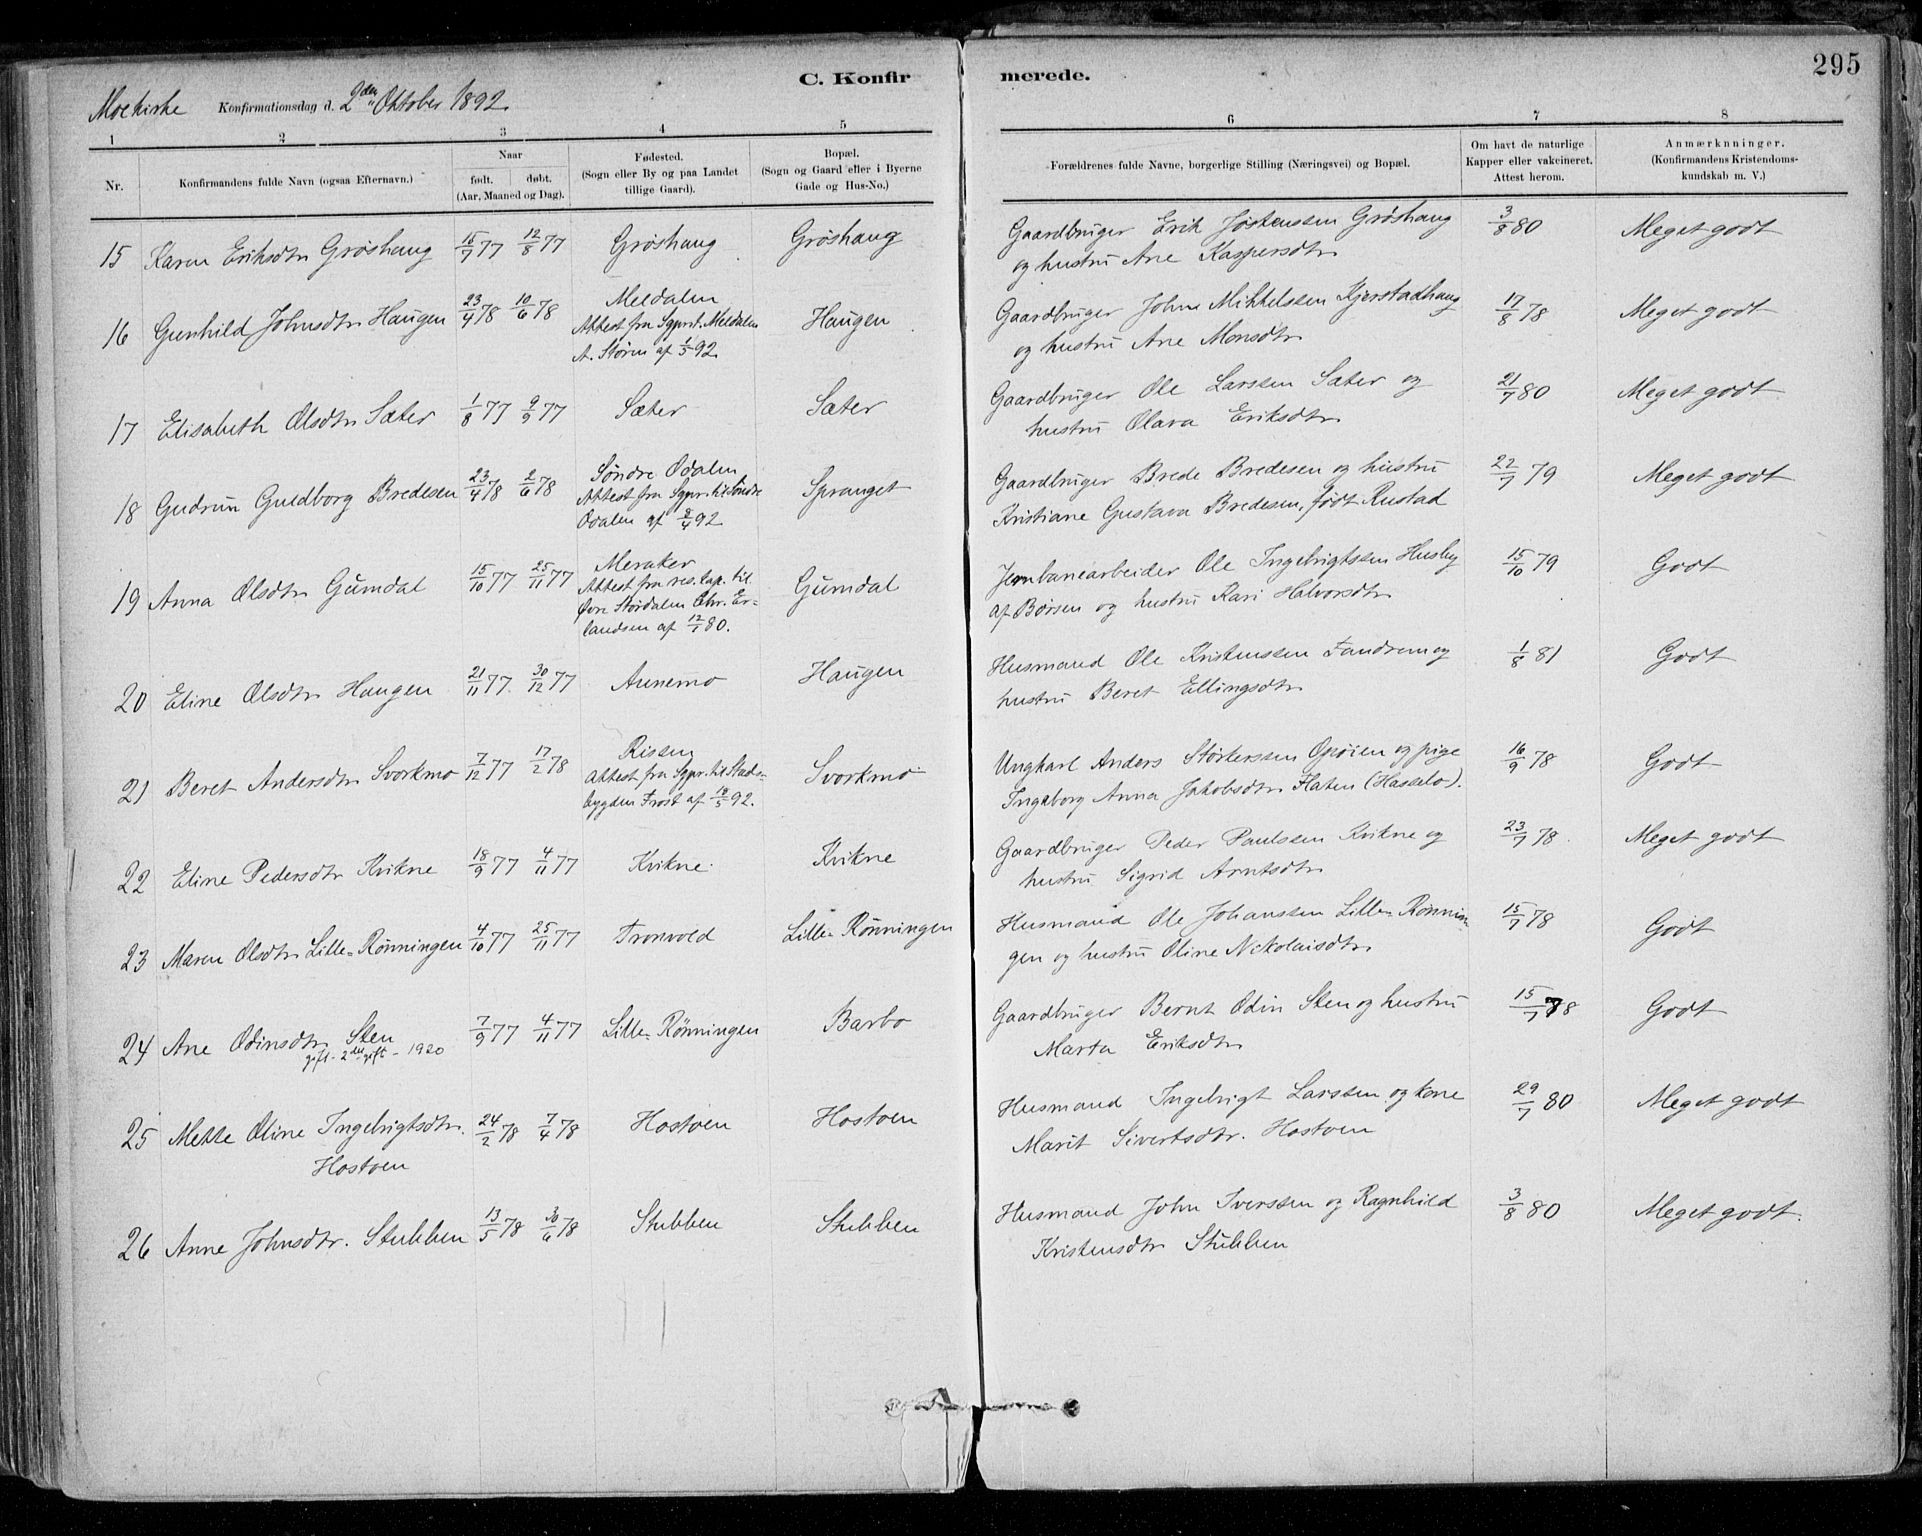 295
C. Konfirmerede.
Moe kirke Konfirmationsdag d. 2den Oktober 1892.
1 2 3 4 5 6 7 8
Nr. Konfirmandens fulde Navn (ogsaa Efternavn). Naar født. døbt. (Aar, Maaned og Dag). Fødested. (Sogn eller By og paa Landet tillige Gaard). Bopæl. (Sogn og Gaard eller i Byerne Gade og Hus-No.) Forældrenes fulde Navne, borgerlige Stilling (Næringsvei) og Bopæl. Om havt de naturlige Kapper eller vakcineret. Attest herom. Anmærknninger. (Konfirmandens Kristendoms-kundskab m. V.)
15 Karen Eriksdtr Gröshaug 16/7 77 12/8 77 Gröshaug Gröshaug Gaardbruger Erik Jöstenssen Gröshaug 3/8 80 Meget godt
og hustru Ane Kaspersdtr
16 Gunhild Johnsdtr Haugen 23/4 78 10/6 78 Meldalen Haugen Gaardbruger John Mikkelssen Kjerstadhaug 17/8 78 Meget godt
Attest fra Sgpr. t. Meldalen og hustru Ane Monsdtr
A. Störm af 1/5 92.
17 Elisabeth Olsdtr Sæter 1/8 77 9/9 77 Sæter Sæter Gaardbruger Ole Larssen Sæter og 21/7 80 Meget godt
hustru Olava Eriksdtr
18 Gudrun Guldborg Bredesen 23/4 78 2/6 78 Söndre Odalen Spranget Gaardbruger Brede Bredesen og hustru 22/7 79 Meget godt
Attest fra Sgpr. til Söndre Kristiane Gustava Bredesen, födt Rustad
Odalen af 8/4 92
19 Anna Olsdtr Gumdal 15/10 77 25/11 77 Meraker Gumdal Jernbanearbeider Ole Ingebrigtssen Husby 15/10 79 Godt
Attest fra res. kap. til af Börsen og hustru Kari Halvorsdtr
Övre Stördalen Chr. Er-
landsen af 12/1 80.
20 Eline Olsdtr Haugen 21/11 77. 30/12 77 Annemo Haugen Husmand Ole Kristenssen Fandrem og 1/8 81 Godt
hustru Beret Ellingsdtr
21 Beret Andersdtr Svorkmo 7/12 77 17/2 78 Rissen Svorkmo Ungkarl Anders Störkerssen Opöien og pige 16/9 78 Godt
Attest fra Sgpr. til Stads- Ingeborg Anna Jakobsdtr Flaten (Hasselo).
bygden Frost af 18/5 92.
22 Eline Pedersdtr Kvikne 18/9 77 4/11 77 Kvikne Kvikne Gaardbruger Peder Paulssen Kvikne og 23/7 78. Meget godt
hustru Sigrid Arntsdtr
23 Maren Olsdtr Lille-Rönningen 4/10 77 25/11 77 Tronvold Lille-Rönningen Husmand Ole Johanssen Lille-Rönnin- 15/7 78 Godt
gen og hustru Oline Nikolaisdtr
24 Ane Odinsdtr Sten 7/9 77 4/11 77 Lille-Rönningen Barbo Gaardbruger Bernt Odin Sten og hustru 15/7 78 Godt
gift - 2den gift - 1920 Marta Eriksdtr
25 Mette Oline Ingebrigtsdtr. 24/2 78 7/4 78 Hostoen Hostoen Husmand Ingebrigt Larssen og kone 29/7 80 Meget godt
Hostoen Marit Sivertsdtr. Hostoen
26 Anne Johnsdtr. Stubben 13/5 78 30/6 78 Stubben Stubben Husmand John Iverssen og Ragnhild 3/8 80 Meget godt.
Kristensdtr Stubben